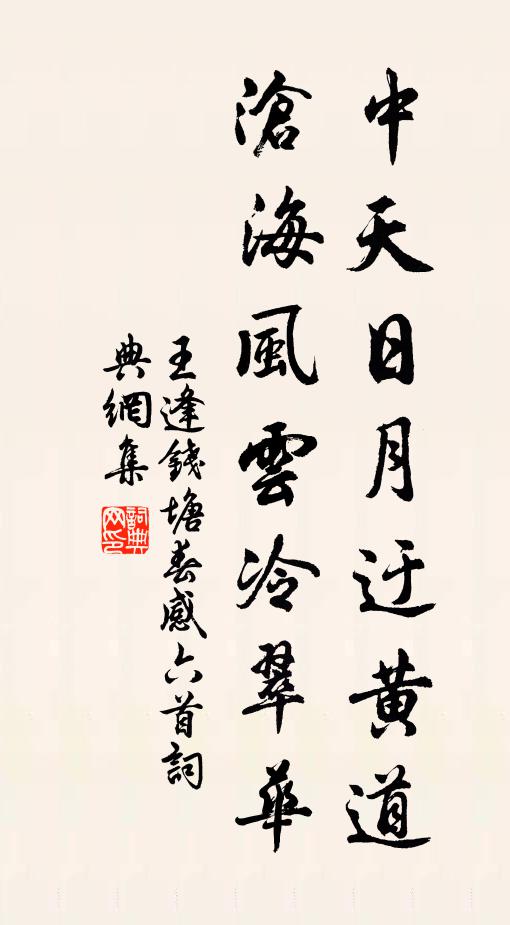 中天日月迂黄道
滄海風雲冷翠華
王逢錢塘春感六首詞
典網集
詞典網印